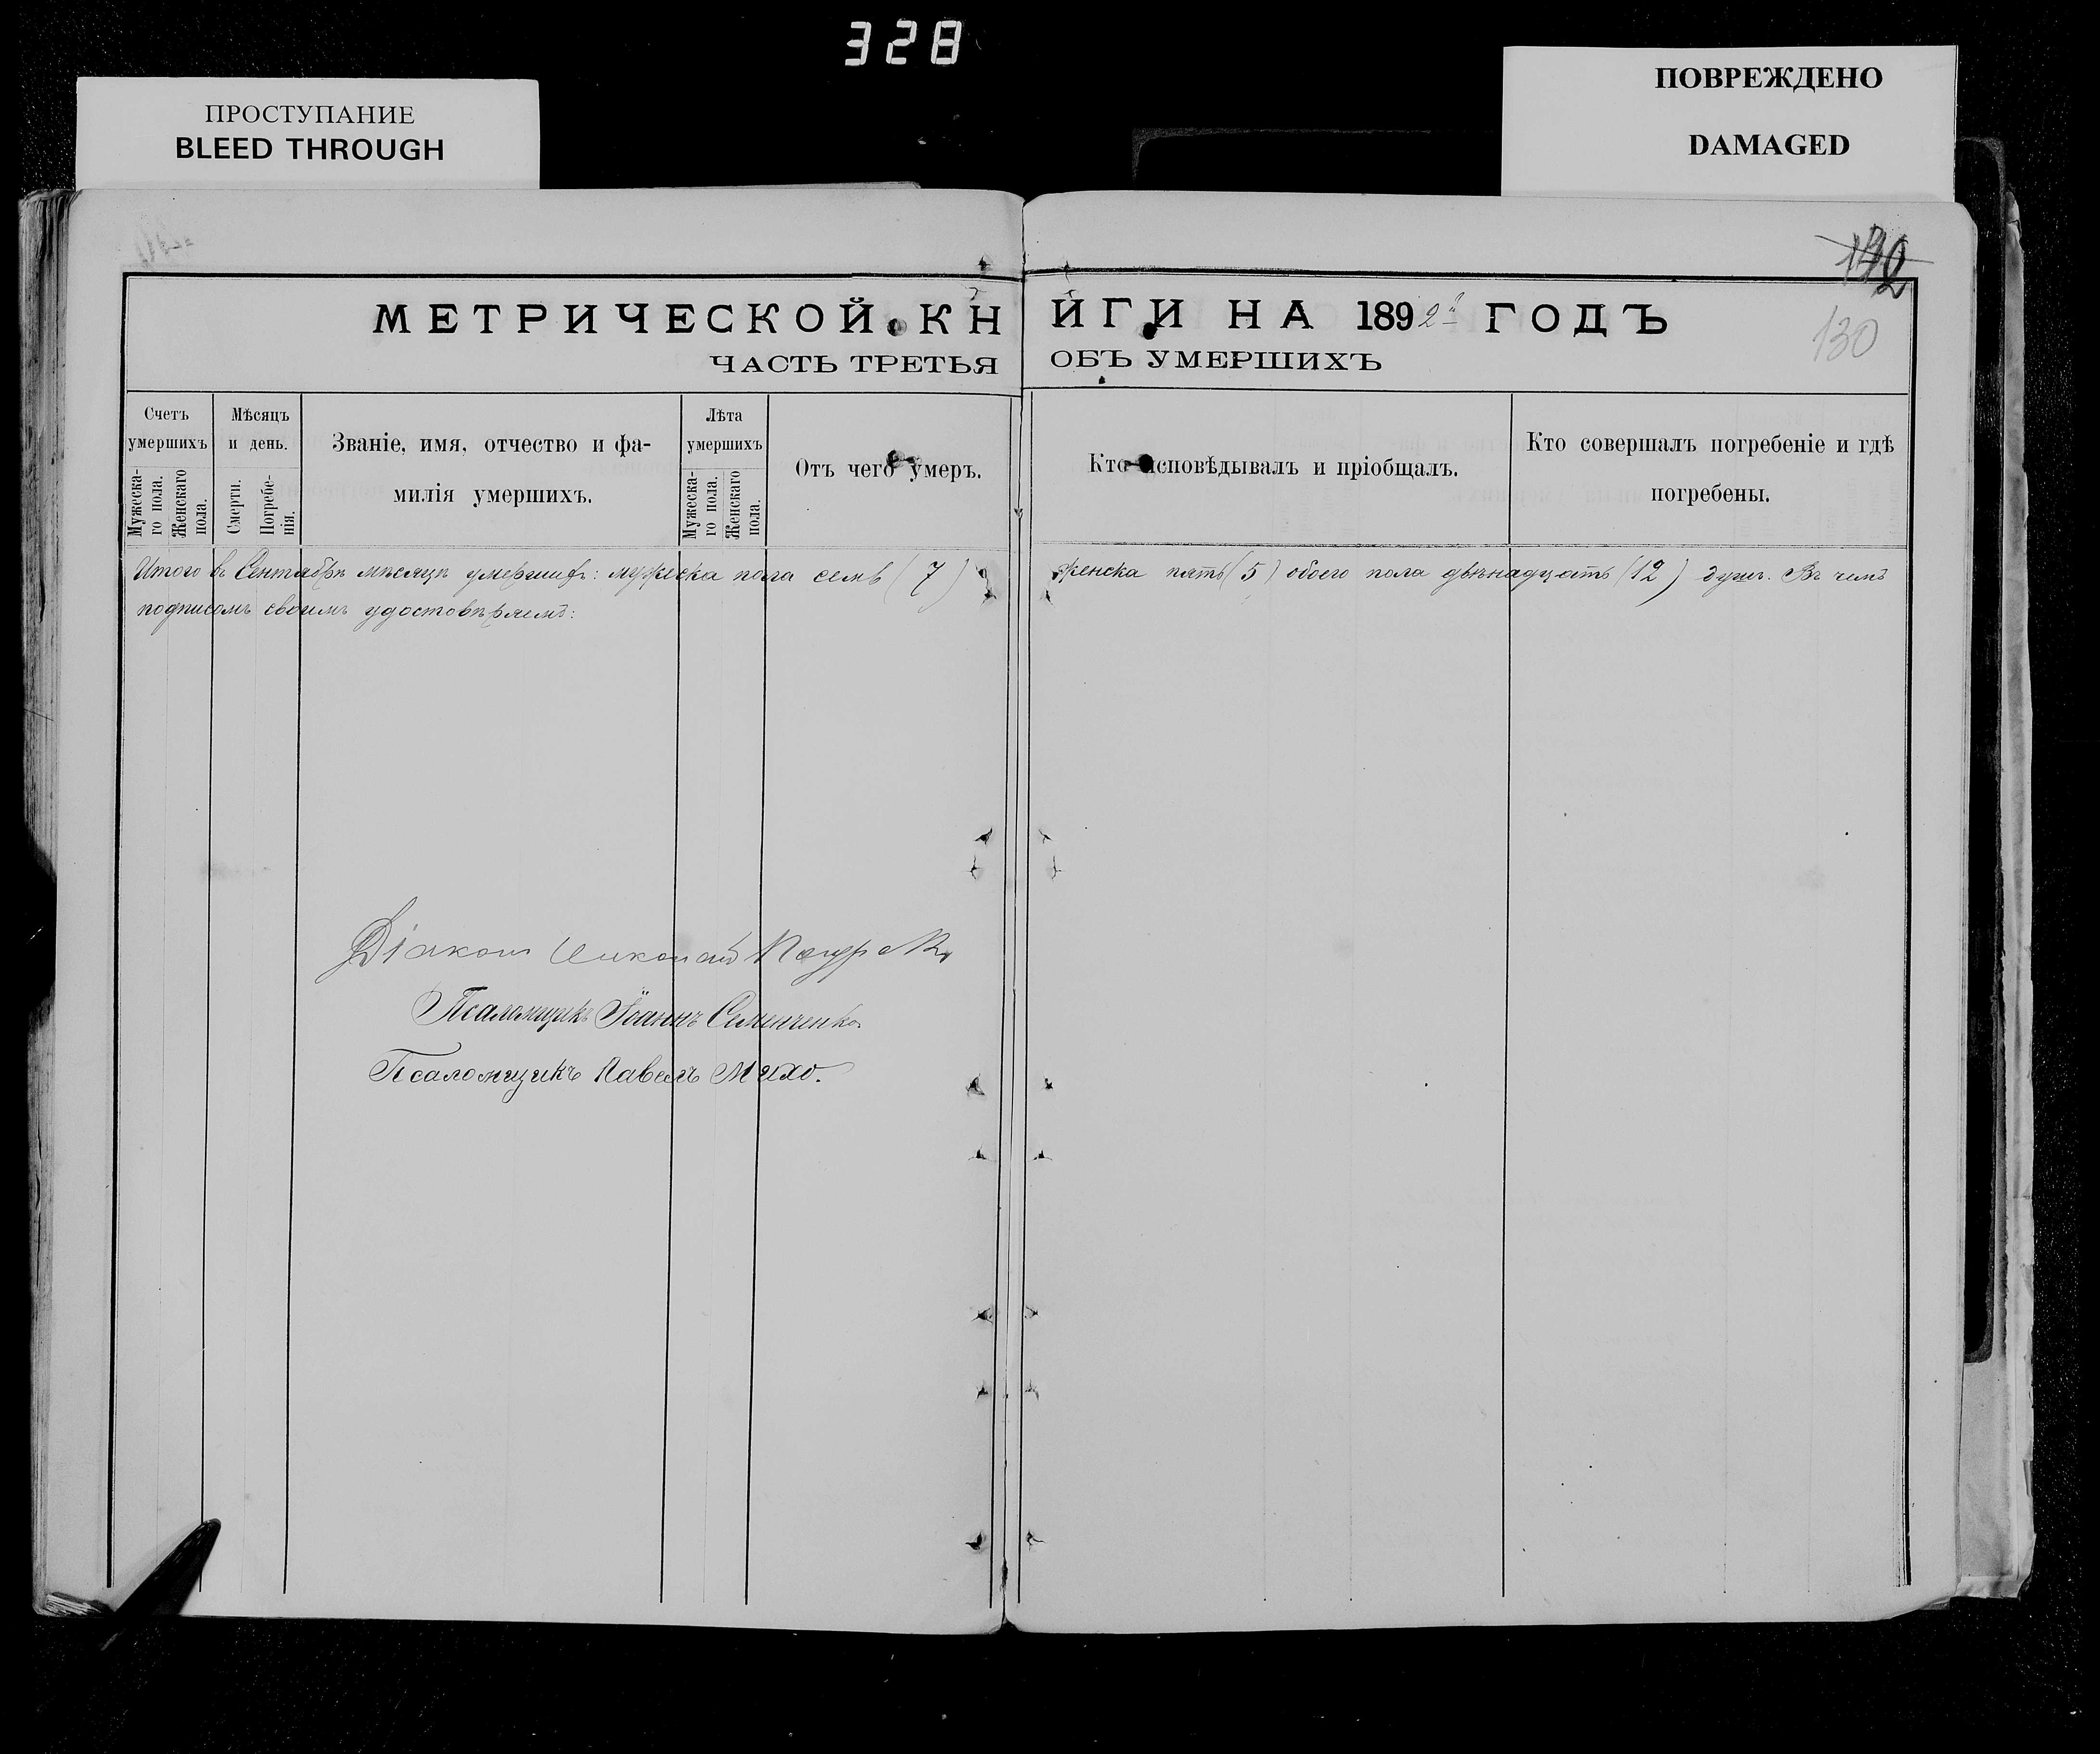 328
ПРОСТУПАНИЕ
BLEED THROUGH
ПОВРЕЖДЕНО
DAMAGED
130
МЕТРИЧЕСКОЙ КНИГИ НА 1892й ГОДЪ
ЧАСТЬ ТРЕТЬЯ ОБЪ УМЕРШИХЪ
Счетъ умершихъ
Мужеска-го пола.
Женскаго пола.
Мѣсяцъ и день.
Смерти.
Погребе-нія.
Званіе, имя, отчество и фа-
милія умершихъ.
Лѣта умершихъ
Мужеска-го пола.
Женскаго пола.
Отъ чего умеръ.
Кто исповѣдывалъ и пріобщалъ.
Кто совершалъ погребеніе и гдѣ
погребены.
Итого въ Сентябрѣ мѣсяцѣ умершихъ: мужеска пола семь (7) женска пять (5) обоего пола двѣнадцать (12) душъ. Въ чемъ
подписомъ своимъ удостовѣряемъ:
Діаконъ Николай
Псаломщикъ Іоаннъ Семенченко
Псаломщикъ Павелъ Михо.